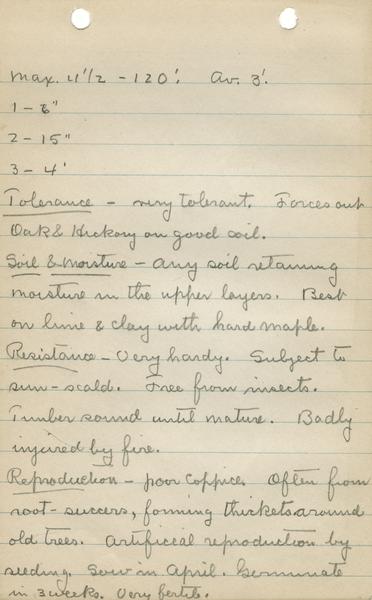 Max. 4 1/2 - 120'. Av. 3'.
1 - 6"
2 - 15"
3 - 4'
Tolerance - very tolerant. Forces out
Oak & Hickory on good soil.
Soil & Moisture - any soil retaining
moisture in the upper layers. Best
on lime & clay with hard maple.
Resistance - Very hardy. Subject to
sun-scald. Free from insects.
Timber sound until mature. Badly
injured by fire.
Reproduction - poor coppice. Often from
root-succers, forming thickets around
old trees. Artificial reproduction by
seeding. Sow in April. Germinate
in 3 weeks. Very fertile.